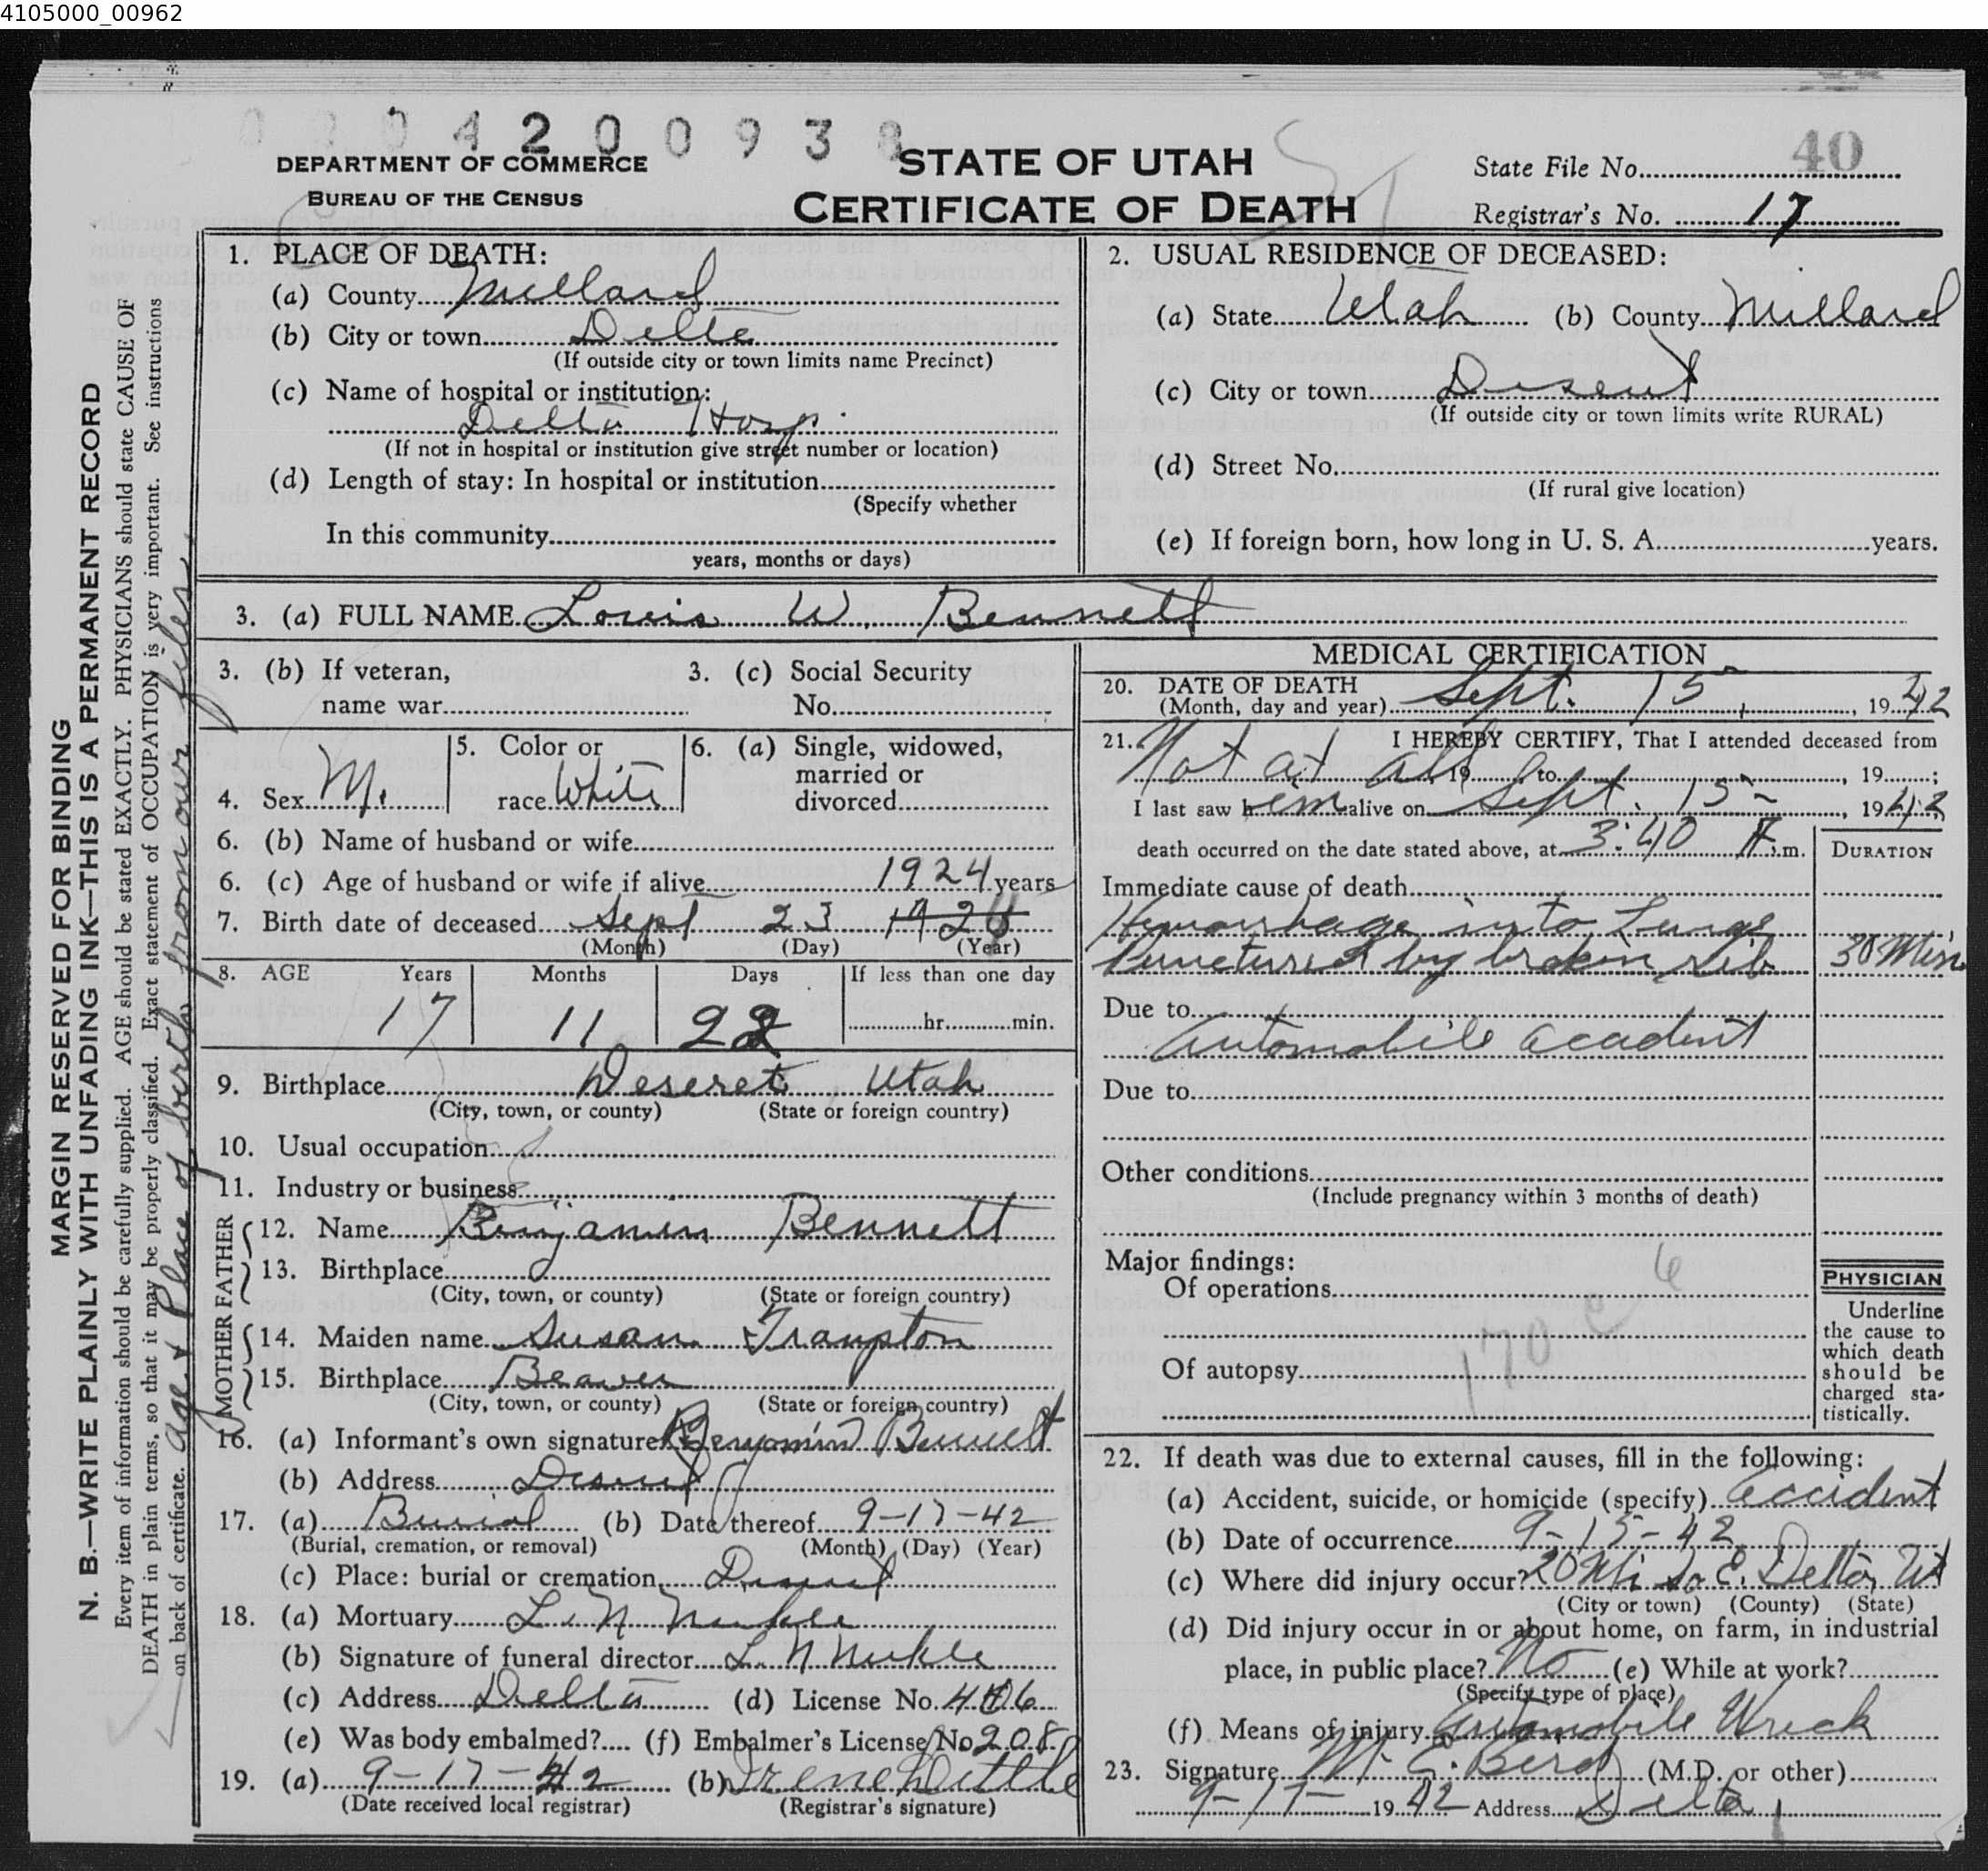 4105000_00962
0 2 0 4 2 0 0 9 3 8
DEPARTMENT OF COMMERCE
BUREAU OF THE CENSUS
STATE OF UTAH
CERTIFICATE OF DEATH
State File No. 40
Registrar's No. 17
MARGIN RESERVED FOR BINDING
N. B.—WRITE PLAINLY WITH UNFADING INK—THIS IS A PERMANENT RECORD
Every item of information should be carefully supplied. AGE should be stated EXACTLY. PHYSICIANS should state CAUSE OF
DEATH in plain terms, so that it may be properly classified. Exact statement of OCCUPATION is very important. See instructions
on back of certificate.
age & place of birth from our files.
1. PLACE OF DEATH:
(a) County Millard
(b) City or town Delta
(If outside city or town limits name Precinct)
(c) Name of hospital or institution:
Delta Hosp.
(If not in hospital or institution give street number or location)
(d) Length of stay: In hospital or institution
(Specify whether
In this community
years, months or days)
2. USUAL RESIDENCE OF DECEASED:
(a) State Utah (b) County Millard
(c) City or town Deseret
(If outside city or town limits write RURAL)
(d) Street No.
(If rural give location)
(e) If foreign born, how long in U. S. A. years.
3. (a) FULL NAME Louis W. Bennett
3. (b) If veteran, name war
3. (c) Social Security No.
4. Sex M.
5. Color or race White
6. (a) Single, widowed, married or divorced
6. (b) Name of husband or wife
6. (c) Age of husband or wife if alive years
1924
7. Birth date of deceased Sept 23 192
(Month) (Day) (Year)
8. AGE Years Months Days If less than one day
17 11 22 hr. min.
9. Birthplace Deseret, Utah
(City, town, or county) (State or foreign country)
10. Usual occupation
11. Industry or business
FATHER
12. Name Benjamin Bennett
13. Birthplace
(City, town, or county) (State or foreign country)
MOTHER
14. Maiden name Susan
15. Birthplace Beaver
(City, town, or county) (State or foreign country)
16. (a) Informant's own signature Benjamin Bennett
(b) Address Deseret
17. (a) Burial (b) Date thereof 9-17-42
(Burial, cremation, or removal) (Month) (Day) (Year)
(c) Place: burial or cremation Deseret
18. (a) Mortuary L. N. Nickle
(b) Signature of funeral director L. N. Nickle
(c) Address Delta (d) License No. 406
(e) Was body embalmed? (f) Embalmer's License No. 208
19. (a) 9-17-42 (b) Irene
(Date received local registrar) (Registrar's signature)
MEDICAL CERTIFICATION
20. DATE OF DEATH
(Month, day and year) Sept. 15, 1942
21. I HEREBY CERTIFY, That I attended deceased from
Not at all 19 to , 19 ;
I last saw him alive on Sept. 15 - , 1942
death occurred on the date stated above, at 3:40 m.
DURATION
Immediate cause of death
Hemorrhage into Lungs
Punctured by broken rib 30 Min
Due to
Automobile accident
Due to
Other conditions
(Include pregnancy within 3 months of death)
Major findings:
Of operations
170
Of autopsy
PHYSICIAN
Underline
the cause to
which death
should be
charged sta-
tistically.
22. If death was due to external causes, fill in the following:
(a) Accident, suicide, or homicide (specify) accident
(b) Date of occurrence 9-15-42
(c) Where did injury occur? 20 Mi So E. Delta, Ut
(City or town) (County) (State)
(d) Did injury occur in or about home, on farm, in industrial
place, in public place? No (e) While at work?
(Specify type of place)
(f) Means of injury Automobile Wreck
23. Signature M. E. Bird (M.D. or other)
9-17- 1942 Address Delta